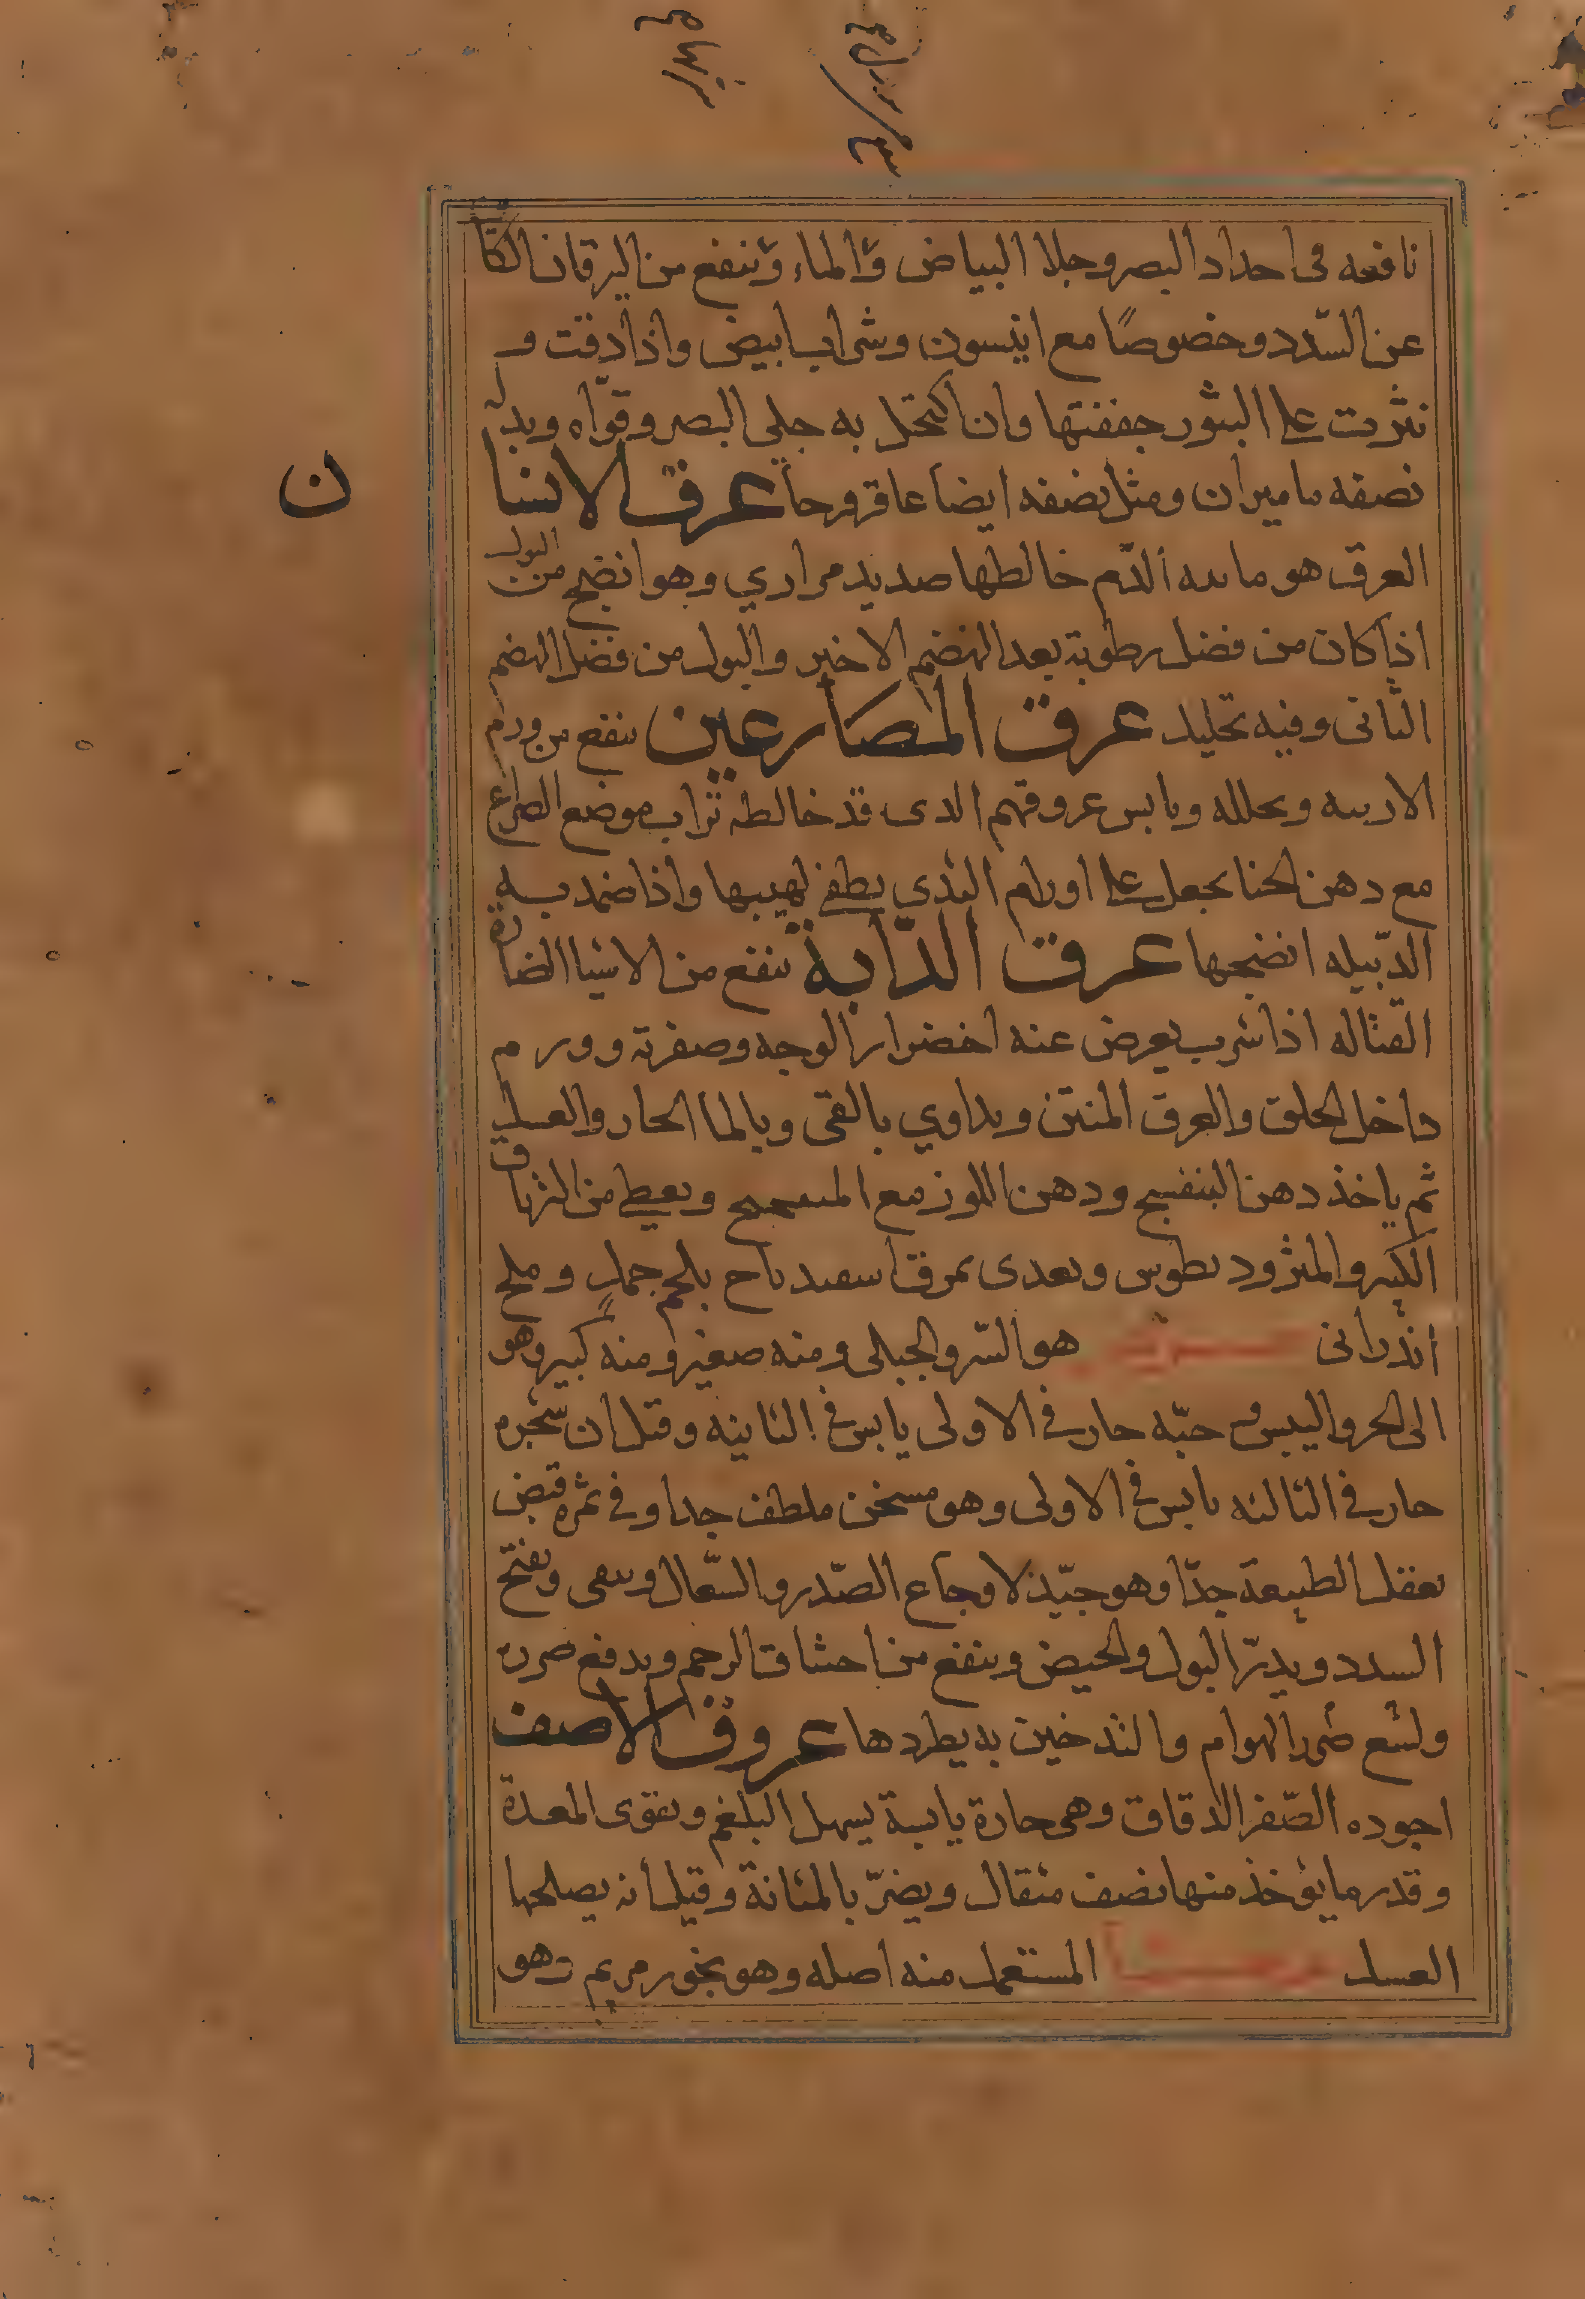 نافعه فى احداد البصر وجلا البياض والماء وينفع من اليرقان الكا
عن السّدد وخصوصًا مع انيسون وشراب ابيض واذا دقت و
نثرت على البثور جففتها وان اكتحل به جلى البصر وقوّاه وبدله
نصفه ماميران ومثل نصفه ايضا عاقرقرحا عرق الانسا
ن
العرق هو مايىه الدّم خالطها صديد مراري وهو انضج من البول
اذا كان من فضل رطوبة بعد الهضم الاخير والبول من فضل الهضم
الثانى وفيه تحليل عرق المصارعين ينفع من ورم
الاربيه ويحلله ويابس عروقهم الدى قد خالطه تراب موضع الصراع
مع دهن الحنا يجعل على اورام الثدي يطفى لهيبها واذا ضمد به
الدّبيله انضجها عرق الدّابة ينفع من الاشيا الضارة
القتاله اذا شرب يعرض عنه اخضرار الوجه وصفرته وورم
داخل الحلق والعرق المنتن ويداوي بالقى وبالما الحار والعسل
ثم ياخذ دهن البنفسج ودهن اللوز مع ويعطى من الترياق
الكبير والمثروديطوس ويغدى بمرق اسفيدباج بلحم جمل وملح
اندرانى هو السّرو الجبلى ومنه صغير ومنه كبير وهو
الى الحر واليبس حبّه حار فى الاولى يابس فى الثانيه وقيل ان شجره
حار فى الثالثه يابس فى الاولى وهو مسخن ملطف جدا وفى ثمره قبض
يعقل الطبيعة جدّا وهو جيّد لاوجاع الصّدر والسّعال وينقى ويفتح
السدد ويدرّ البول والحيض وينفع من اختناق الرحم ويدفع ضرره
ولسع ضرر الهوام والتدخين به يطردها عروق الاصف
اجوده الصّفر الدقاق وهى حارة يابسة يسهل البلغم ويقوى المعدة
وقدر ما يؤخذ منها نصف مثقال ويضرّ بالمثانة وقيل انه يصلحها
العسل المستعمل منه اصله وهو بخور مريم وهو